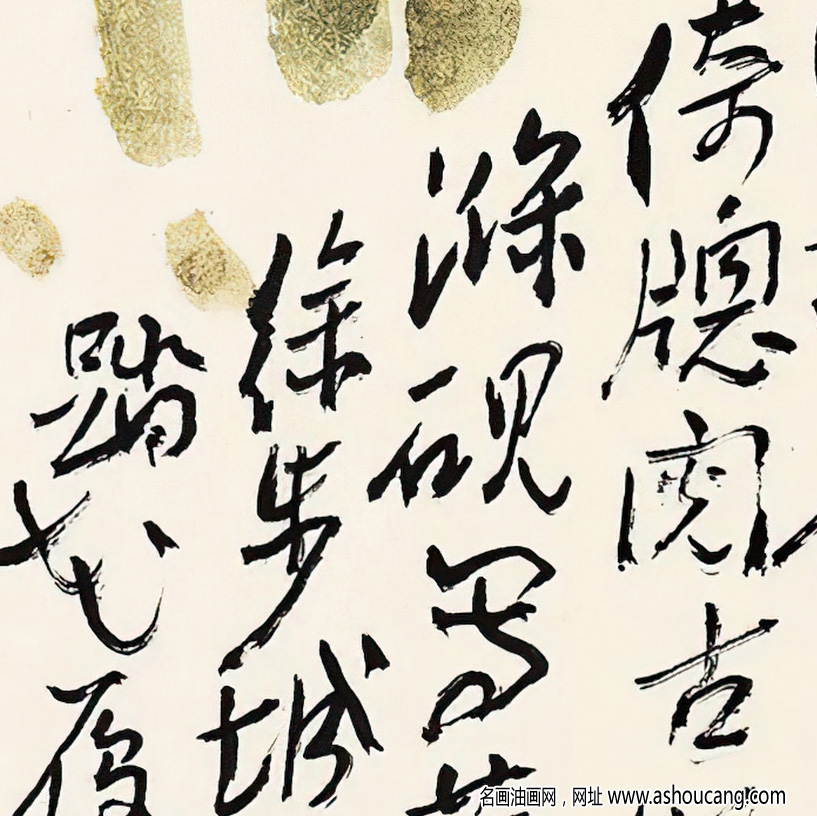 倚牕閱古
滌硯写
徐步城
踏
名画油画网，网址 www.ashoucang.com